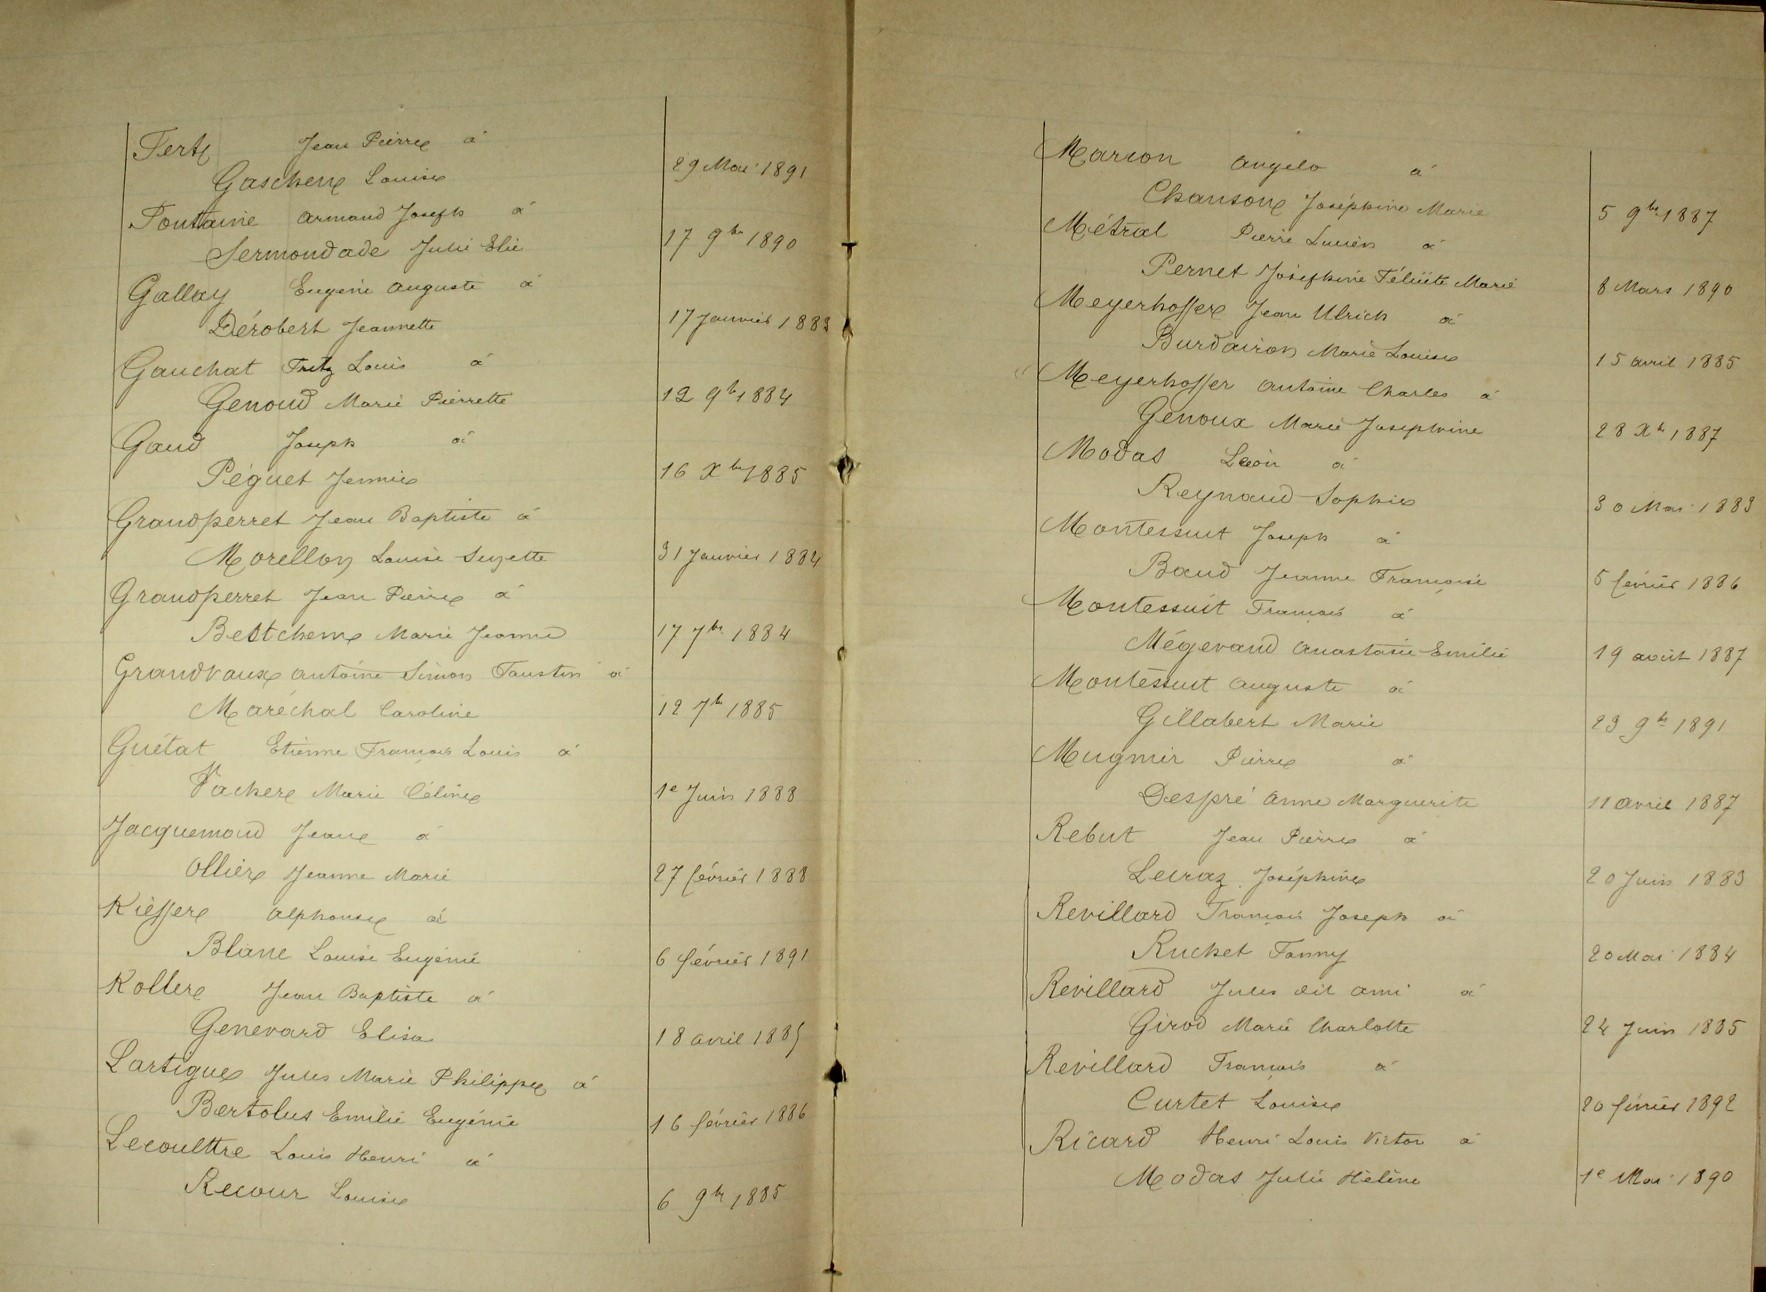 Ferte Jean Pierre à
Gaschen Louise 29 Mai 1891
Fontaine Armand Joseph à
Sermondade Julie Elie 17 9bre 1890
Gallay Eugène Auguste à
Dérobert Jeannette 17 Janvier 1883
Gauchat Fritz Louis à
Genoud Marie Pierrette 12 9b 1884
Gaud Joseph à
Péguet Jennie 16 Xbre 1885
Grandperret Jean Baptiste à
Morellon Louise Suzette 31 Janvier 1884
Grandperret Jean Pierre à
Bettchen Marie Jeanne 17 7bre 1884
Grandvaux Antoine Simon Faustin à
Maréchal Caroline 12 7bre 1885
Guétat Etienne François Louis à
Vacher Marie Céline 1e Juin 1888
Jacquemoud Jean à
Ollier Jeanne Marie 27 février 1888
Kieffer Alphonse à
Blanc Louise Eugénie 6 février 1891
Koller Jean Baptiste à
Genevard Elisa 18 avril 1885
Lartigue Jules Marie Philippe à
Bertolus Emilie Eugénie 16 février 1886
Lecoultre Louis Henri à
Recour Louise 6 9bre 1885
Marcon Angelo à
Chanson Joséphine Marie 5 9bre 1887
Métral Pierre Lucien à
Pernet Joséphine Félicité Marie 8 Mars 1890
Meyerhoffer Jean Ulrich à
Burdairon Marie Louise 15 avril 1885
Meyerhoffer Antoine Charles à
Genoux Marie Josephine 28 Xb 1887
Modas Léon à
Reynaud Sophie 30 Mai 1883
Montessuit Joseph à
Baud Jeanne Françoise 5 février 1886
Montessuit François à
Mégevand Anastasie Emilie 19 août 1887
Montessuit Auguste à
Gillabert Marie 23 9b 1891
Mugnier Pierre à
Despré Anne Marguerite 11 avril 1887
Rebut Jean Pierre à
Lecraz Joséphine 20 Juin 1883
Revillard François Joseph à
Ruchet Fanny 20 Mai 1884
Revillard Jules dit Ami à
Girod Marie Charlotte 24 Juin 1885
Revillard François à
Curtet Louise 20 février 1892
Ricard Henri Louis Victor à
Modas Julie Hélène 1e Mai 1890